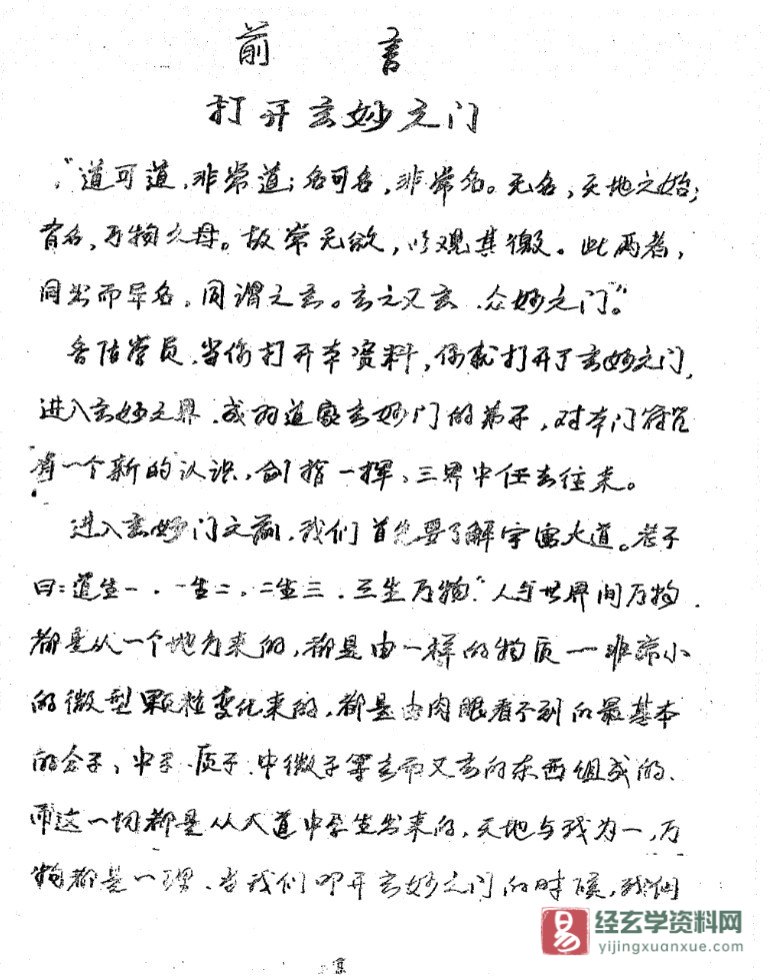 前 言
打开玄妙之门
“道可道，非常道；名可名，非常名。无名，天地之始；
有名，万物之母。故常无欲，以观其徼。此两者，
同出而异名，同谓之玄。玄之又玄，众妙之门”。
各位学员，当你打开本资料，你就打开了玄妙之门，
进入玄妙之界，成为道家玄妙门的弟子，对本门符咒
有一个新的认识，剑指一挥，三界中任去往来。
进入玄妙门之前，我们首先要了解宇宙大道。老子
曰：道生一，一生二，二生三，三生万物”人与世界间万物，
都是从一个地方来的，都是由一样的物质一非常小
的微型颗粒变化来的，都是由肉眼看不到的最基本
的分子，中子、质子、中微子等玄而又玄的东西组成的、
而这一切都是从大道中孕生出来的，天地与我为一，万
物都是一理、当我们叩开玄妙之门的时候，我们
易 经玄学资料网
yijingxuanxue.com